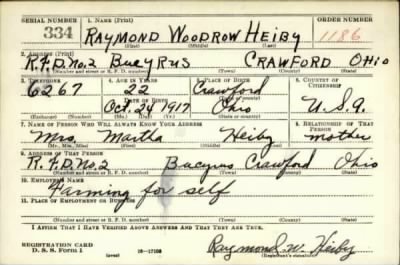 SERIAL NUMBER 1. NAME (Print) ORDER NUMBER
334 RAYMOND WOODROW HEIBY 1186
(First) (Middle) (Last)
2. ADDRESS (Print)
R.F.D.No.2 BUCYRUS CRAWFORD OHIO
(Number and street or R. F. D. number) (Town) (County) (State)
3. TELEPHONE 4. AGE IN YEARS 5. PLACE OF BIRTH 6. COUNTRY OF CITIZENSHIP
6267 22 Crawford
DATE OF BIRTH
Oct. 24 1917 Ohio U.S.A.
(Exchange) (Number) (Mo.) (Day) (Yr.) (State or country)
7. NAME OF PERSON WHO WILL ALWAYS KNOW YOUR ADDRESS 8. RELATIONSHIP OF THAT PERSON
Mrs Martha Heiby mother
(Mr., Mrs., Miss) (First) (Middle) (Last)
9. ADDRESS OF THAT PERSON
R.F.D.No.2 Bucyrus Crawford Ohio
(Number and street or R. F. D. number) (Town) (County) (State)
10. EMPLOYER'S NAME
Farming for self
11. PLACE OF EMPLOYMENT OR BUSINESS
(Number and street or R. F. D. number) (Town) (County) (State)
I AFFIRM THAT I HAVE VERIFIED ABOVE ANSWERS AND THAT THEY ARE TRUE.
REGISTRATION CARD
D. S. S. Form 1 (over) 16—17105 Raymond W. Heiby
(Registrant's signature)